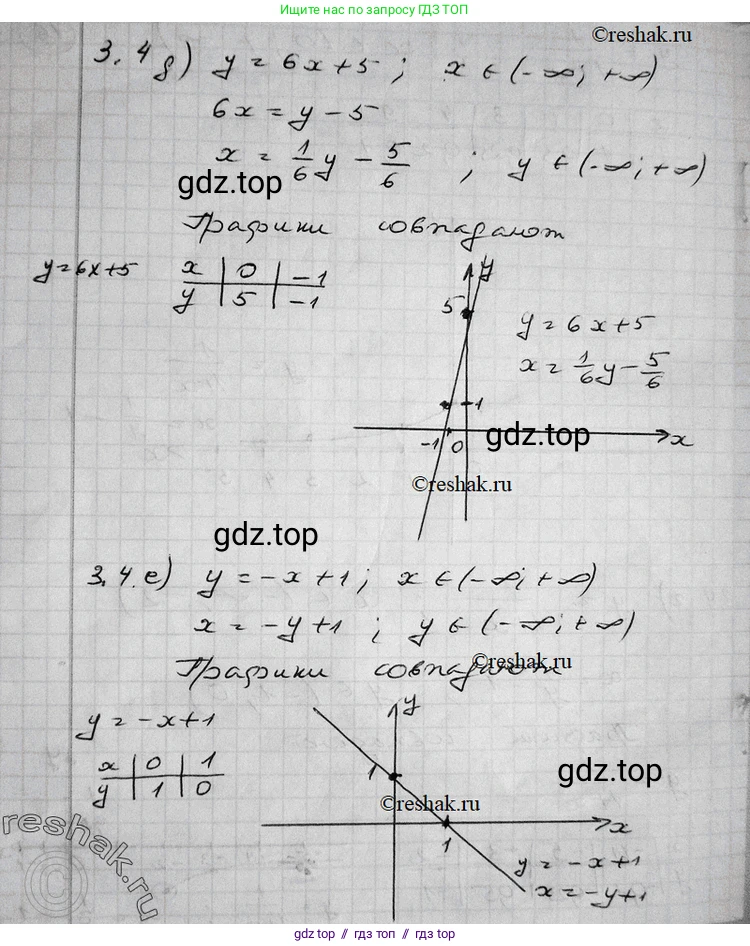 Ищите ответы по запросу ГДЗ ТОП
©reshak.ru
3.4 д) y = 6x + 5 ; x ∈ (-∞; +∞)
6x = y - 5
x = 1/6 y - 5/6 ; y ∈ (-∞; +∞)
gdz.top
Графики совпадают
y = 6x + 5
x | 0 | -1
y | 5 | -1
y
5
y = 6x + 5
x = 1/6 y - 5/6
1
-1 0
x
gdz.top
©reshak.ru
gdz.top
3.4. е) y = -x + 1 ; x ∈ (-∞; +∞)
x = -y + 1 ; y ∈ (-∞; +∞)
©reshak.ru
Графики совпадают
y = -x + 1
x | 0 | 1
y | 1 | 0
y
1
gdz.top
©reshak.ru
x
1
y = -x + 1
x = -y + 1
reshak.ru
©
gdz.top // гдз топ // gdz top